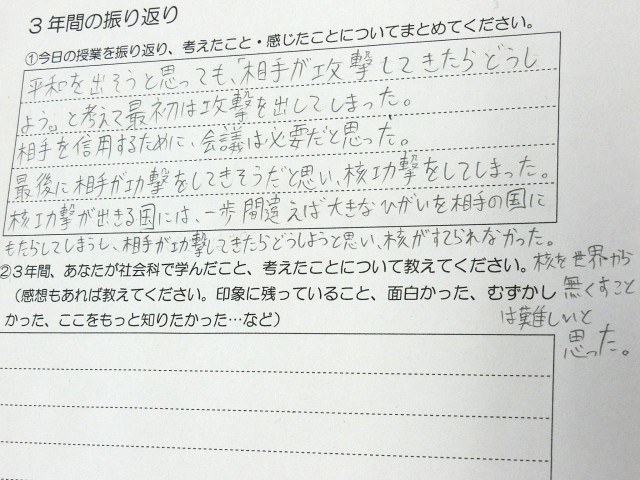 3年間の振り返り
①今日の授業を振り返り、考えたこと・感じたことについてまとめてください。
平和を出そうと思っても、「相手が攻撃してきたらどうし
よう。」と考えて最初は攻撃を出してしまった。
相手を信用するために、会議は必要だと思った。
最後に相手が攻撃をしてきそうだと思い、核攻撃をしてしまった。
核攻撃が出きる国には、一歩間違えば大きなひがいを相手の国に
もたらしてしまうし、相手が攻撃してきたらどうしようと思い、核がすてられなかった。
核を世界から
無くすこと
は難しいと
思った。
②3年間、あなたが社会科で学んだこと、考えたことについて教えてください。
（感想もあれば教えてください。印象に残っていること、面白かった、むずかし
かった、ここをもっと知りたかった…など）